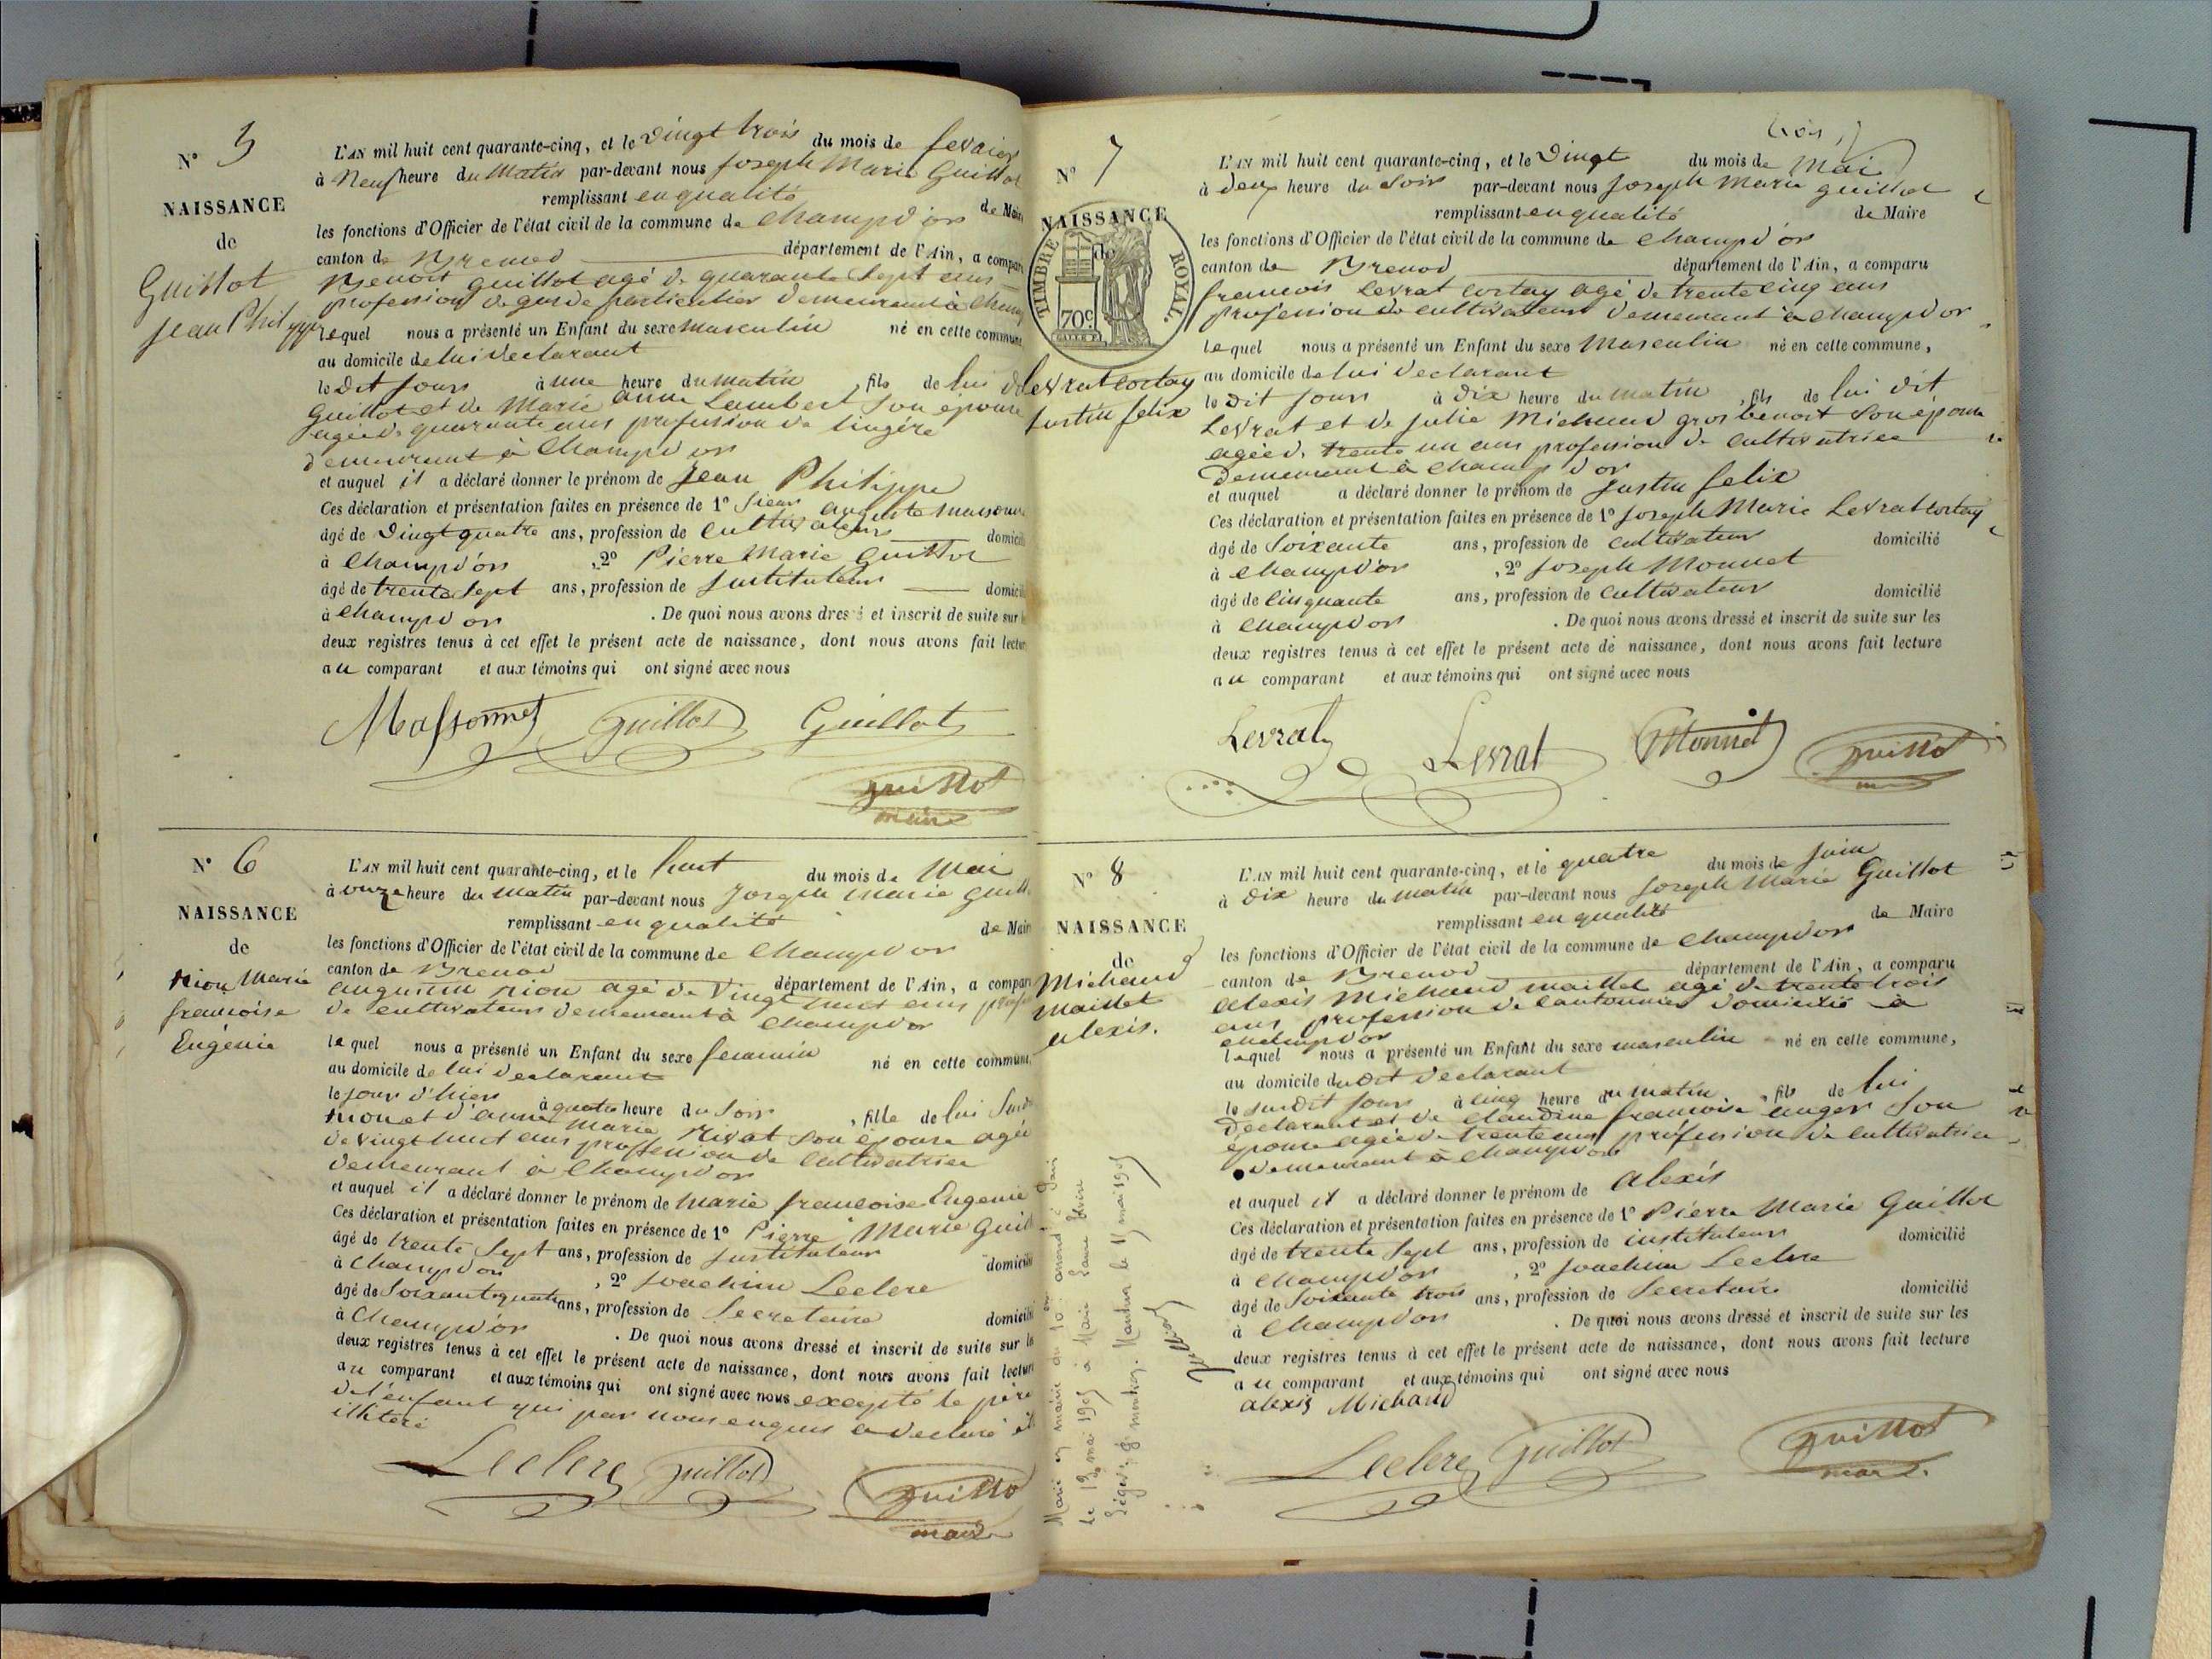 N° 5
NAISSANCE
de
Guillot
Jean Philippe
L'AN mil huit cent quarante-cinq, et le vingt trois du mois de fevrier
à Neuf heure du Matin par-devant nous Joseph Marie Guillot
remplissant en qualité de Maire
les fonctions d'Officier de l'état civil de la commune de Champd'or
canton de Brenod département de l'Ain, a comparu
Benoit Guillot agé de quarante sept ans
profession de garde particulier demeurant à Champ
lequel nous a présenté un Enfant du sexe masculin né en cette commune
au domicile de lui declarant
le dit jour à une heure du matin, fils de lui d
Guillot et de Marie anne Lambert son épouse
agée de quarante ans profession de lingére
demeurant à Champd'or
et auquel il a déclaré donner le prénom de Jean Philippe
Ces déclaration et présentation faites en présence de 1° sieur auguste massonnet
âgé de vingt quatre ans, profession de cultivateur domicilié
à Champd'or, 2° Pierre Marie Guillot
âgé de trente sept ans, profession de Instituteur domicilié
à Champd'or. De quoi nous avons dressé et inscrit de suite sur les
deux registres tenus à cet effet le présent acte de naissance, dont nous avons fait lecture
au comparant et aux témoins qui ont signé avec nous
Massonnet Guillot Guillot
Guillot
maire
N° 6
NAISSANCE
de
Nion Marie
françoise
Eugénie
L'AN mil huit cent quarante-cinq, et le huit du mois de Mai
à onze heure du matin par-devant nous Joseph Marie Guill
remplissant en qualité de Maire
les fonctions d'Officier de l'état civil de la commune de Champd'or
canton de Brenod département de l'Ain, a comparu
augustin nion agé de vingt huit ans prof
de cultivateur demeurant à Champd'or
lequel nous a présenté un Enfant du sexe feminin né en cette commune,
au domicile de lui declarant
le jour d'hier à quatre heure du soir, fille de lui
nion et d'anne Marie Rivat son épouse agée
de vingt huit ans proffession de cultivatrice
demeurant à Champd'or
et auquel il a déclaré donner le prénom de Marie françoise Eugenie
Ces déclaration et présentation faites en présence de 1° Pierre Marie Guill
âgé de trente sept ans, profession de Instituteur domicilié
à Champd'or, 2° Joachim Leclerc
âgé de soixante quatre ans, profession de Secretaire domicilié
à Champd'or. De quoi nous avons dressé et inscrit de suite sur les
deux registres tenus à cet effet le présent acte de naissance, dont nous avons fait lecture
au comparant et aux témoins qui ont signé avec nous excepté le père
de l'enfant qui par nous enquis a declaré
illiteré
Leclerc Guillot
Guillot
maire
N° 7
NAISSANCE
de
TIMBRE ROYAL.
70c
Levrat cortay
Justin felix
trois
L'AN mil huit cent quarante-cinq, et le vingt du mois de Mai
à deux heure du soir par-devant nous Joseph Marie guillot
remplissant en qualité de Maire
les fonctions d'Officier de l'état civil de la commune de Champd'or
canton de Brenod département de l'Ain, a comparu
francois Levrat cortay agé de trente cinq ans
profession de cultivateur demeurant à Champd'or
lequel nous a présenté un Enfant du sexe masculin né en cette commune,
au domicile de lui declarant
le dit jour à dix heure du matin, fils de lui dit
Levrat et de Julie Michaud gros benoit son épouse
agée de trente un ans profession de cultivatrice
demeurant à Champd'or
et auquel a déclaré donner le prénom de Justin felix
Ces déclaration et présentation faites en présence de 1° Joseph Marie Levrat cortay
âgé de soixante ans, profession de cultivateur domicilié
à Champd'or, 2° Joseph Monnet
âgé de cinquante ans, profession de cultivateur domicilié
à Champd'or. De quoi nous avons dressé et inscrit de suite sur les
deux registres tenus à cet effet le présent acte de naissance, dont nous avons fait lecture
au comparant et aux témoins qui ont signé avec nous
Levrat Levrat Monnet Guillot
N° 8
NAISSANCE
de
Michaud
maillet
alexis.
L'AN mil huit cent quarante-cinq, et le quatre du mois de juin
à dix heure du matin par-devant nous Joseph Marie Guillot
remplissant en qualité de Maire
les fonctions d'Officier de l'état civil de la commune de Champd'or
canton de Brenod département de l'Ain, a comparu
alexis Michaud maillet agé de trente trois
ans profession de cantonnier domicilié à
Champd'or
lequel nous a présenté un Enfant du sexe masculin né en cette commune,
au domicile du dit declarant
le susdit jour à cinq heure du matin, fils de lui
declarant et de Claudine francoise auger son
épouse agée de trente ans profession de cultivatrice
demeurant à Champd'or
et auquel il a déclaré donner le prénom de Alexis
Ces déclaration et présentation faites en présence de 1° Pierre Marie Guillot
âgé de trente sept ans, profession de instituteur domicilié
à Champd'or, 2° Joachim Leclerc
âgé de soixante trois ans, profession de Secretaire domicilié
à Champd'or. De quoi nous avons dressé et inscrit de suite sur les
deux registres tenus à cet effet le présent acte de naissance, dont nous avons fait lecture
au comparant et aux témoins qui ont signé avec nous
alexis Michaud
Leclerc Guillot Guillot
maire
Marié en mairie du 10e arrond. Paris
le 13 mai 1905 à Marie Laure
le 15 mai 1905